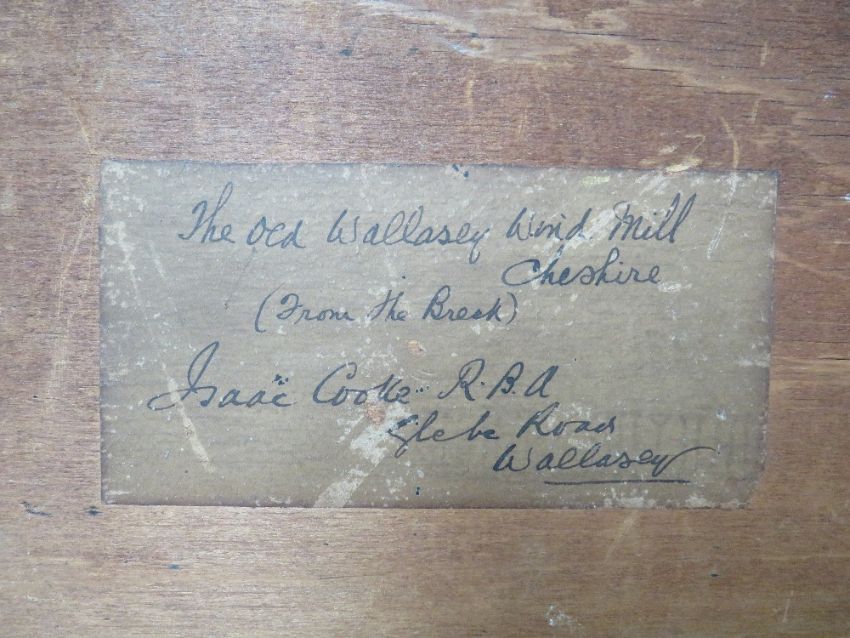 The Old Wallasey Wind Mill
Cheshire
(From the Breck)
Isaac Cooke R.B.A
Glebe Road
Wallasey